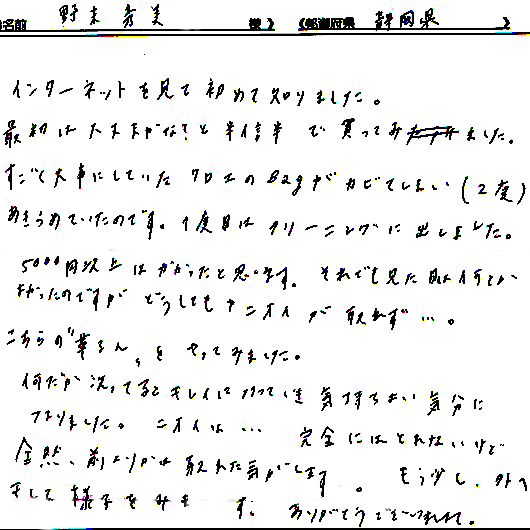 名前 野末 様 》《都道府県 静岡県 》
インターネットを見て初めて知りました。
最初は大丈夫かな?と半信半 で買ってみ ました。
すごく大事にしていた クロエのBagがカビてしまい(2度)
あきらめていたのです。1度目はクリーニングに出しました。
5000円以上はかかったと思います。それでも見た目は何とか
よかったのですが どうしても ニオイが取れず…。
こちらの"革るん"を やってみました。
何だか洗ってると キレイになっていく気持ちよい気分に
なりました。ニオイは… 完全にはとれないけど
全然、前よりかは取れた気がします。もう少し、外へ
干して様子をみます。ありがとうございました。